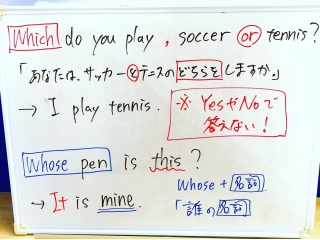 Which do you play, soccer or tennis?
「あなたは、サッカーとテニスのどちらをしますか」
→ I play tennis.
※ YesやNoで
答えない!
Whose pen is this?
Whose + 名詞
→ It is mine.
「誰の名詞」